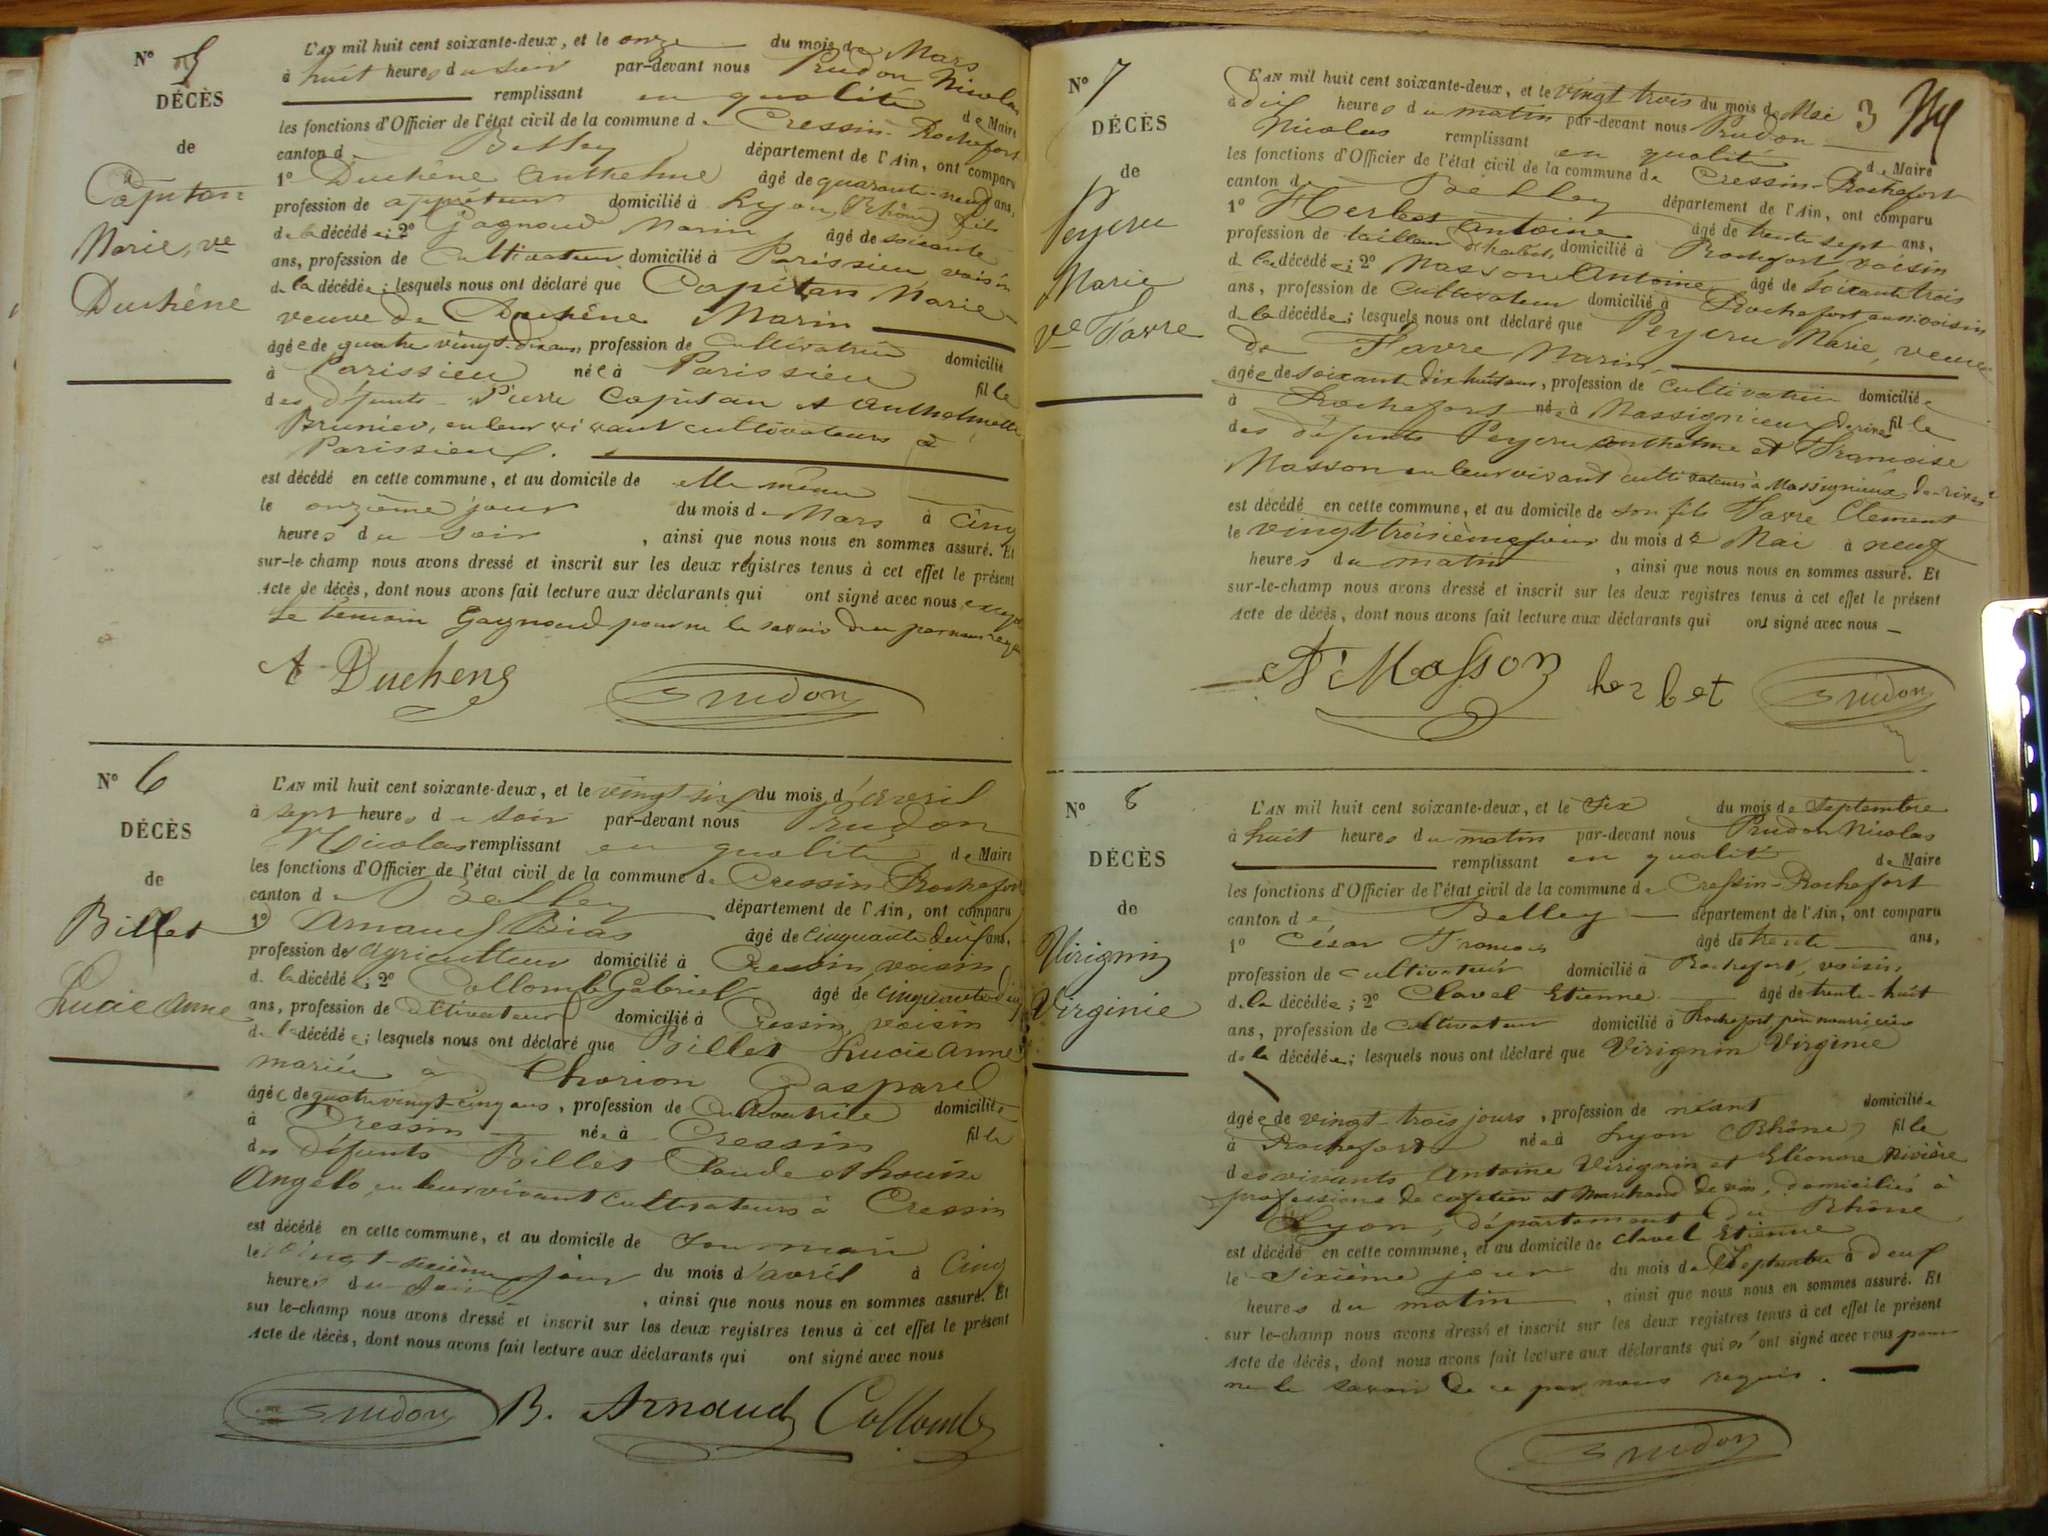 N° 5
DÉCÈS
de
Capitan
Marie, ve
Duchêne
L'AN mil huit cent soixante-deux, et le onze du mois de Mars
à huit heures du soir par-devant nous Prudon Nicolas
remplissant en qualité de Maire
les fonctions d'Officier de l'état civil de la commune de Cressin-Rochefort
canton de Belley département de l'Ain, ont comparu
1° Duchêne Anthelme âgé de quarante-neuf ans,
profession de domicilié à Lyon (Rhône) fils
de la décédée; 2° Gagnoud Marin âgé de soixante
ans, profession de Cultivateur domicilié à Parissieu, voisin
de la décédée; lesquels nous ont déclaré que Capitan Marie
veuve de Duchêne Marin
âgée de quatre vingt-dix ans, profession de Cultivatrice domicilié
à Parissieu née à Parissieu fille
des défunts Pierre Capitan et Anthelmette
Brunier, en leur vivant cultivateurs à
Parissieu.
est décédé en cette commune, et au domicile de elle même
le onzième jour du mois de Mars à cinq
heures du soir, ainsi que nous nous en sommes assuré. Et
sur-le-champ nous avons dressé et inscrit sur les deux registres tenus à cet effet le présent
Acte de décès, dont nous avons fait lecture aux déclarants qui ont signé avec nous, excepté
le témoin Gagnoud pour ne le savoir de ce par nous requis
A Duchene
Prudon
N° 6
DÉCÈS
de
Billet
Lucie Anne
L'AN mil huit cent soixante-deux, et le vingt six du mois d'avril
à sept heures du soir par-devant nous Prudon
Nicolas remplissant en qualité de Maire
les fonctions d'Officier de l'état civil de la commune de Cressin-Rochefort
canton de Belley département de l'Ain, ont comparu
1° Arnaud Bias âgé de cinquante deux ans,
profession de agriculteur domicilié à Cressin, voisin
de la décédée; 2° Collomb Gabriel âgé de cinquante
ans, profession de Cultivateur domicilié à Cressin, voisin
de la décédée; lesquels nous ont déclaré que Billet Lucie Anne
mariée à Chorion Gaspard
âgée de quatre vingt-cinq ans, profession de Cultivatrice domiciliée
à Cressin née à Cressin fille
des défunts Billet Claude et Louise
Angelo, en leur vivant cultivateurs à Cressin
est décédé en cette commune, et au domicile de son mari
le vingt-sixième jour du mois d'avril à cinq
heures du soir, ainsi que nous nous en sommes assuré. Et
sur le-champ nous avons dressé et inscrit sur les deux registres tenus à cet effet le présent
Acte de décès, dont nous avons fait lecture aux déclarants qui ont signé avec nous
Prudon B. Arnaud Collomb
3
N° 7
DÉCÈS
de
Peycru
Marie
ve Favre
L'AN mil huit cent soixante-deux, et le vingt trois du mois de Mai
à dix heures du matin par-devant nous Prudon
Nicolas remplissant en qualité de Maire
les fonctions d'Officier de l'état civil de la commune de Cressin-Rochefort
canton de Belley département de l'Ain, ont comparu
1° Herbet Antoine âgé de trente sept ans,
profession de tailleur d'habits domicilié à Rochefort voisin
de la décédée; 2° Masson Antoine âgé de soixante trois
ans, profession de Cultivateur domicilié à Rochefort aussi voisin
de la décédée; lesquels nous ont déclaré que Peycru Marie, veuve
de Favre Marin
âgée de soixante dix huit ans, profession de cultivatrice domiciliée
à Rochefort née à Massignieu de rives fille
des défunts Peycru Anthelme et Françoise
Masson en leur vivant cultivateurs à Massignieux de rives
est décédé en cette commune, et au domicile de son fils Favre Clement
le vingt troisième jour du mois de Mai à neuf
heures du matin, ainsi que nous nous en sommes assuré. Et
sur-le-champ nous avons dressé et inscrit sur les deux registres tenus à cet effet le présent
Acte de décès, dont nous avons fait lecture aux déclarants qui ont signé avec nous
At Masson herbet Prudon
N° 8
DÉCÈS
de
Virignin
Virginie
L'AN mil huit cent soixante-deux, et le Six du mois de Septembre
à huit heures du matin par-devant nous Prudon Nicolas
remplissant en qualité de Maire
les fonctions d'Officier de l'état civil de la commune de Cressin-Rochefort
canton de Belley département de l'Ain, ont comparu
1° César François âgé de trente ans,
profession de cultivateur domicilié à Rochefort, voisin
de la décédée; 2° Clavel Etienne âgé de trente-huit
ans, profession de cultivateur domicilié à Rochefort père nourricier
de la décédée; lesquels nous ont déclaré que Virignin Virginie
âgée de vingt-trois jours, profession de néant domiciliée
à Rochefort née à Lyon (Rhône) fille
des vivants Antoine Virignin et Eléonore Rivière
professions de cafetier et Marchand de vin, domiciliés à
Lyon, département du Rhône
est décédé en cette commune, et au domicile de Clavel Etienne
le sixième jour du mois de Septembre à deux
heures du matin, ainsi que nous nous en sommes assuré. Et
sur le-champ nous avons dressé et inscrit sur les deux registres tenus à cet effet le présent
Acte de décès, dont nous avons fait lecture aux déclarants qui n'ont signé avec nous pour
ne le savoir de ce par nous requis.
Prudon